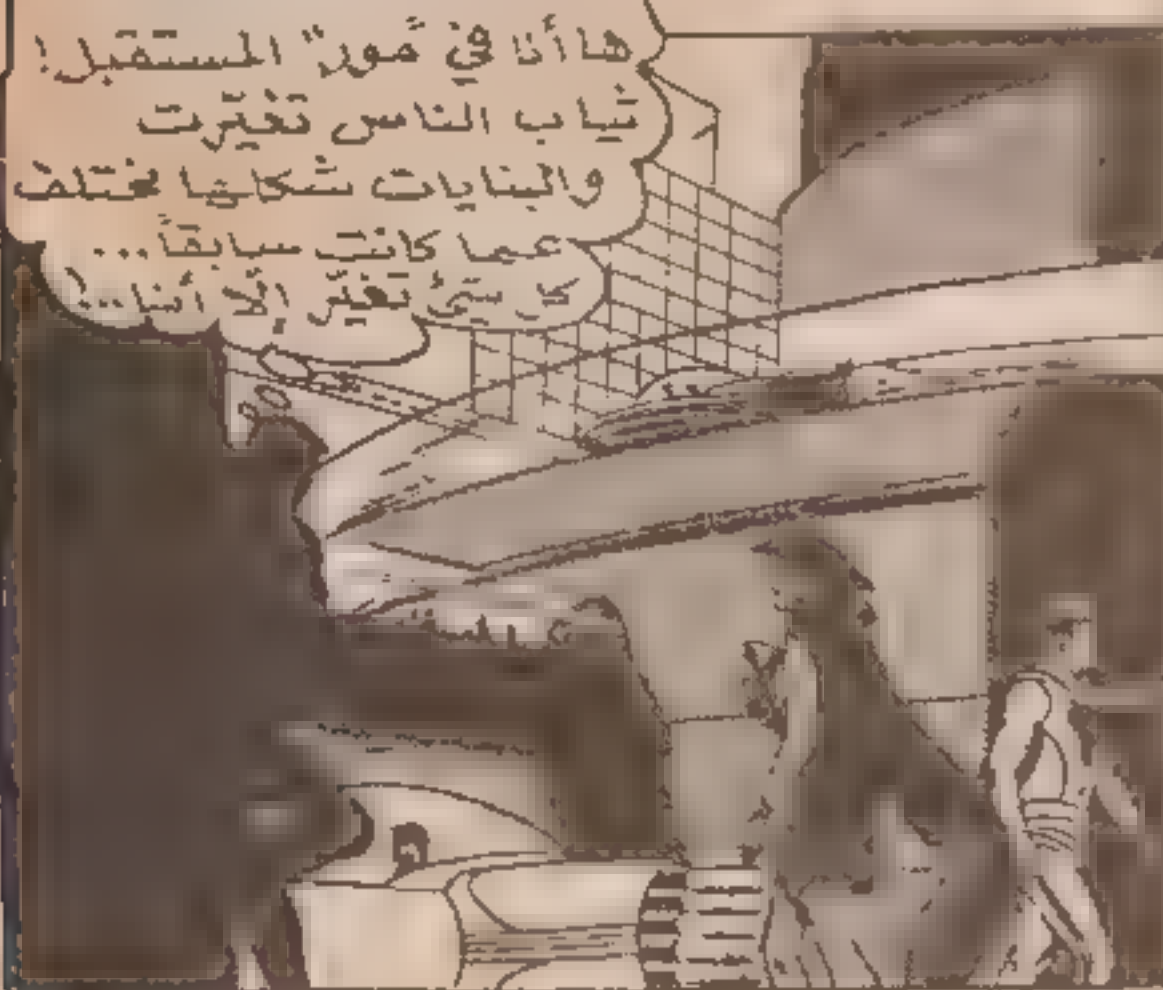 ها أنا في "مور" المستقبل!
ثياب الناس تغيّرت
والبنايات شكلها مختلف
عما كانت سابقاً...
كل شيئ تغيّر إلّا أنا...!